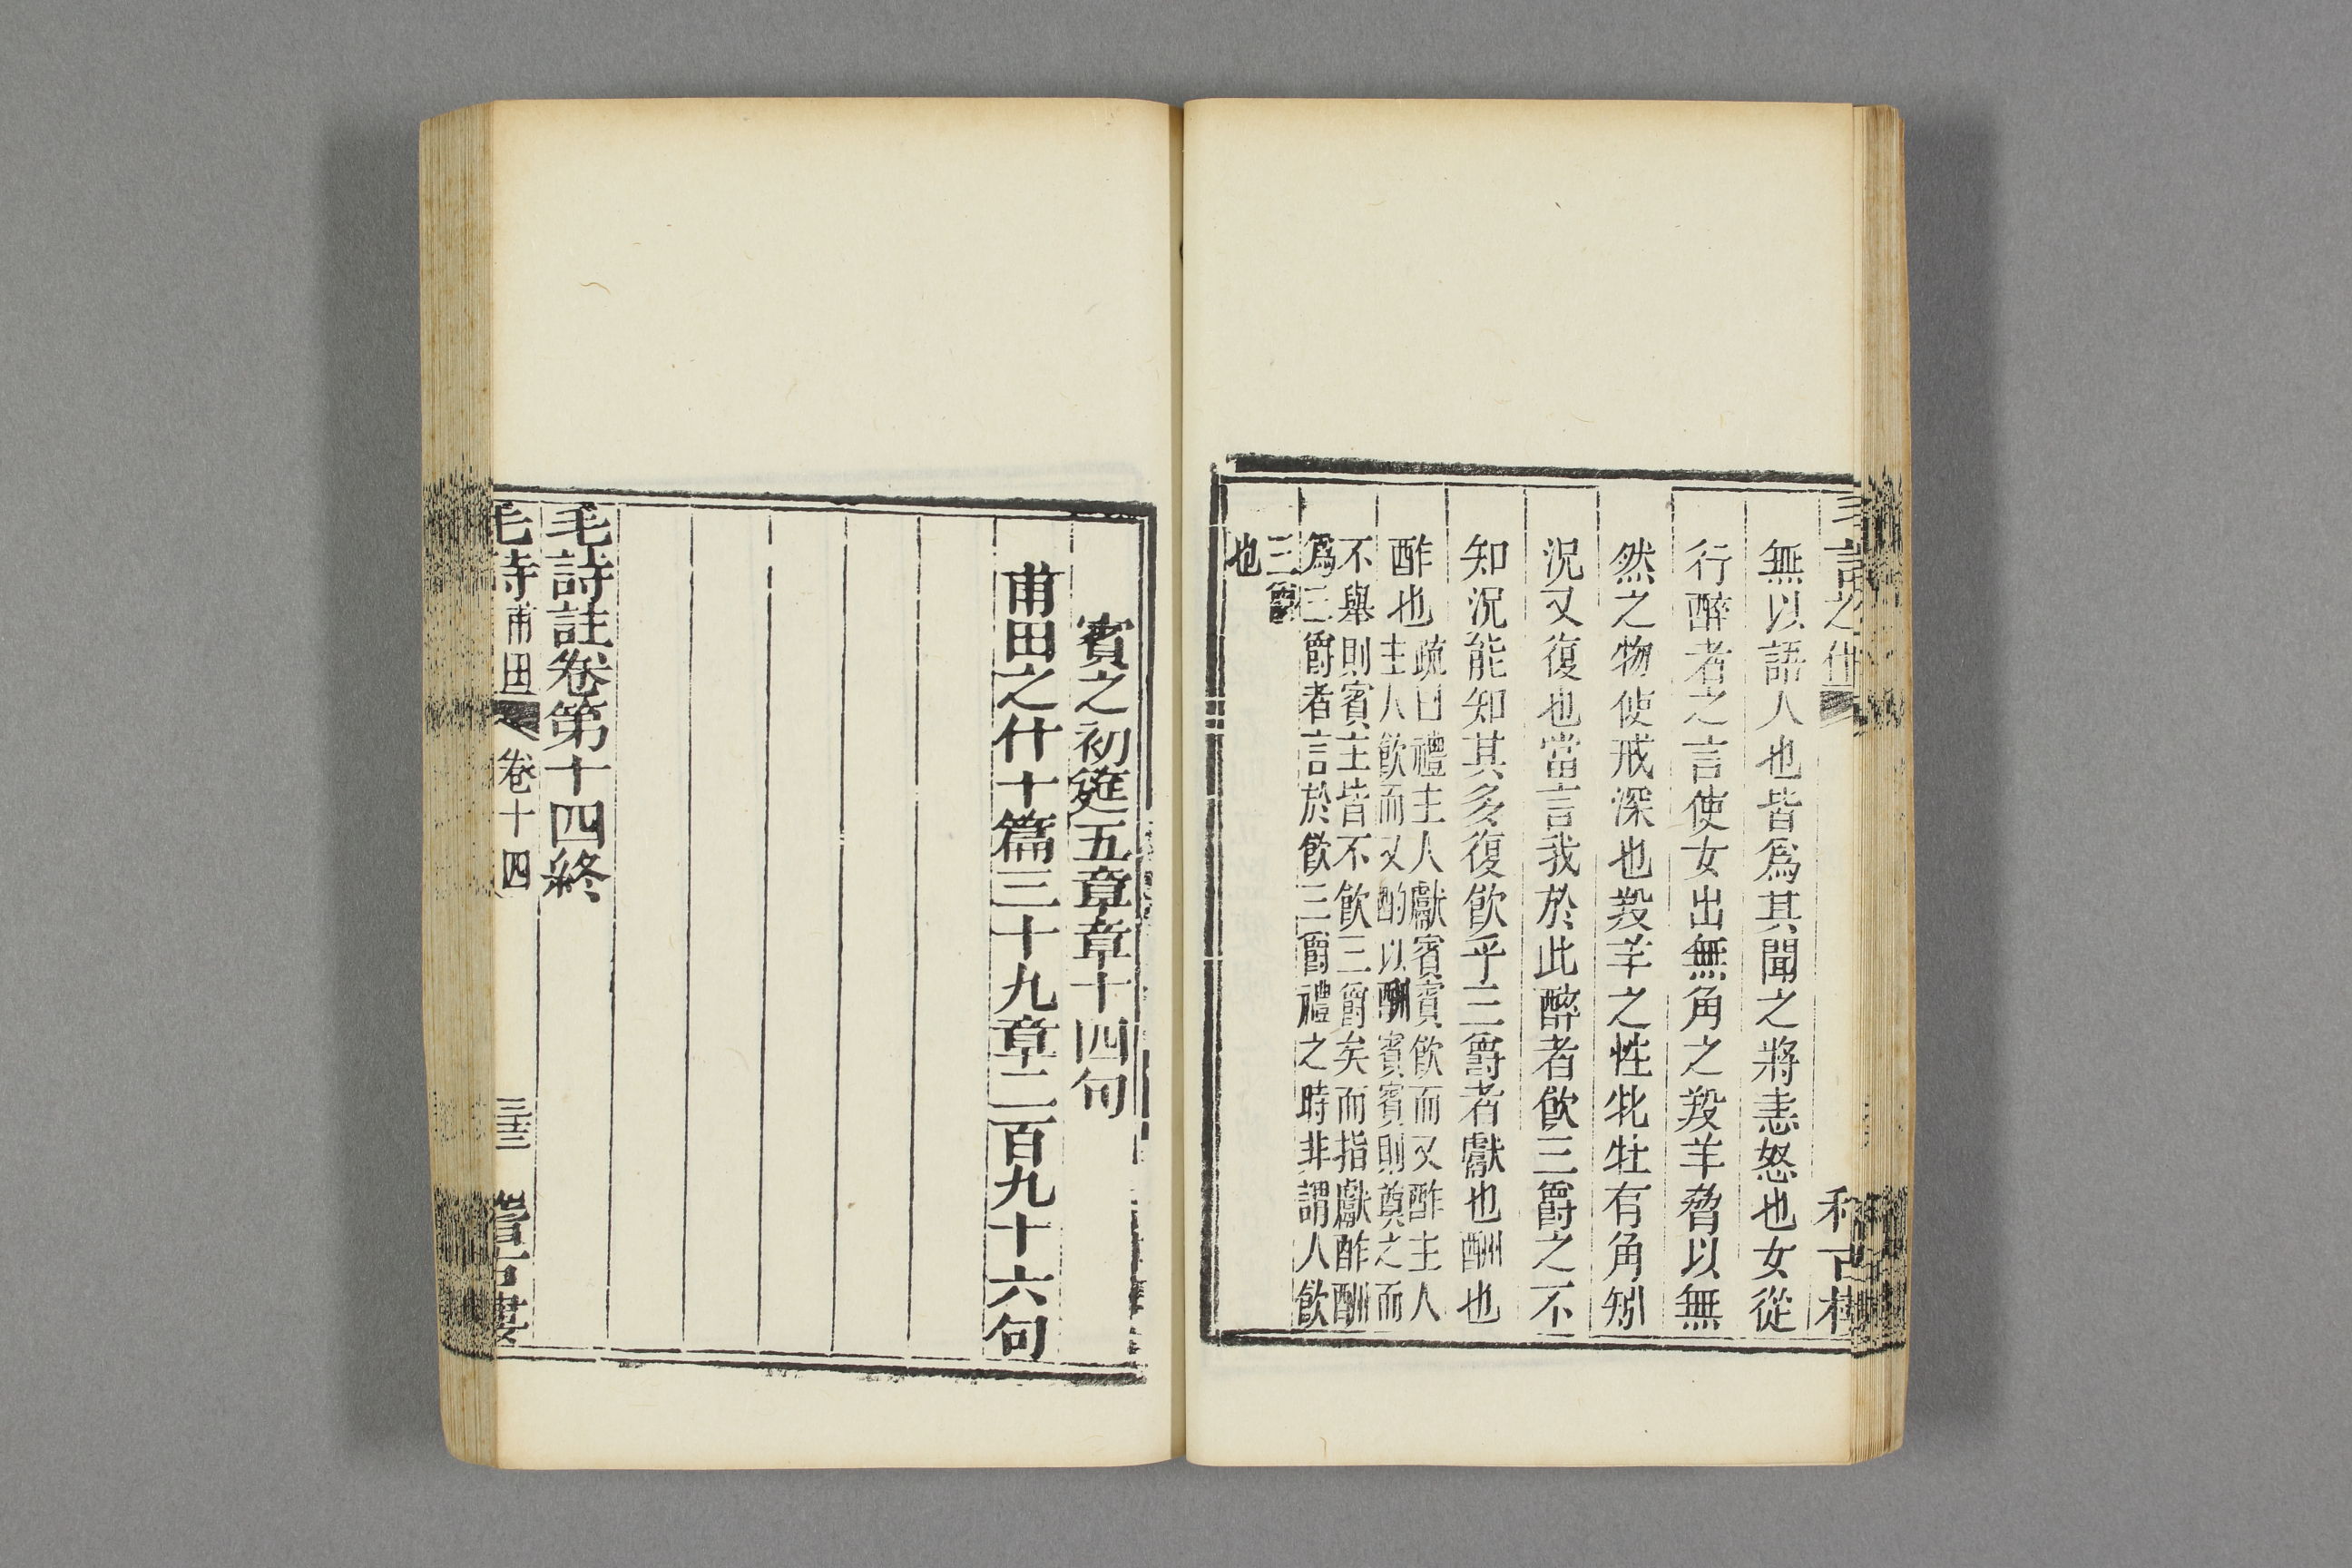 無以語人也皆爲其聞之將恚怒也女從
行醉者之言使女出無角之羖羊脅以無
然之物使戒深也羖羊之性牝牡有角矧
況又復也當言我於此醉者飲三爵之不
知況能知其多復飲乎三爵者獻也酬也
酢也
疏曰禮主人獻賓賓飲而又酢主人
主人飲而又酌以酬賓賓則奠之而
不舉則賓主皆不飲三爵矣而指獻酢酬
爲三爵者言於飲三爵禮之時非謂人飲
三爵
也
賓之初筵五章章十四句
甫田之什十篇三十九章二百九十六句
毛詩註卷第十四終
毛詩甫田之 卷十四